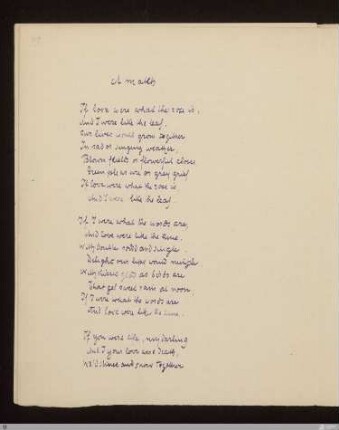 A Match

If love were what the rose is,
And I were like the leaf,
Our lives would grow together
In sad or singing weather,
Blown fields or flowerful closes
Green pleasure or grey grief
If love were what the rose is
And I were like the leaf.

If I were what the words are,
And love were like the tune.
With double sound and single
Delight our lips would mingle
With kisses glad as birds are
That get sweet rain at noon
If I were what the words are
And love were like the tune.

If you were life, my darling
And I your love were death,
We'd shine and snow together